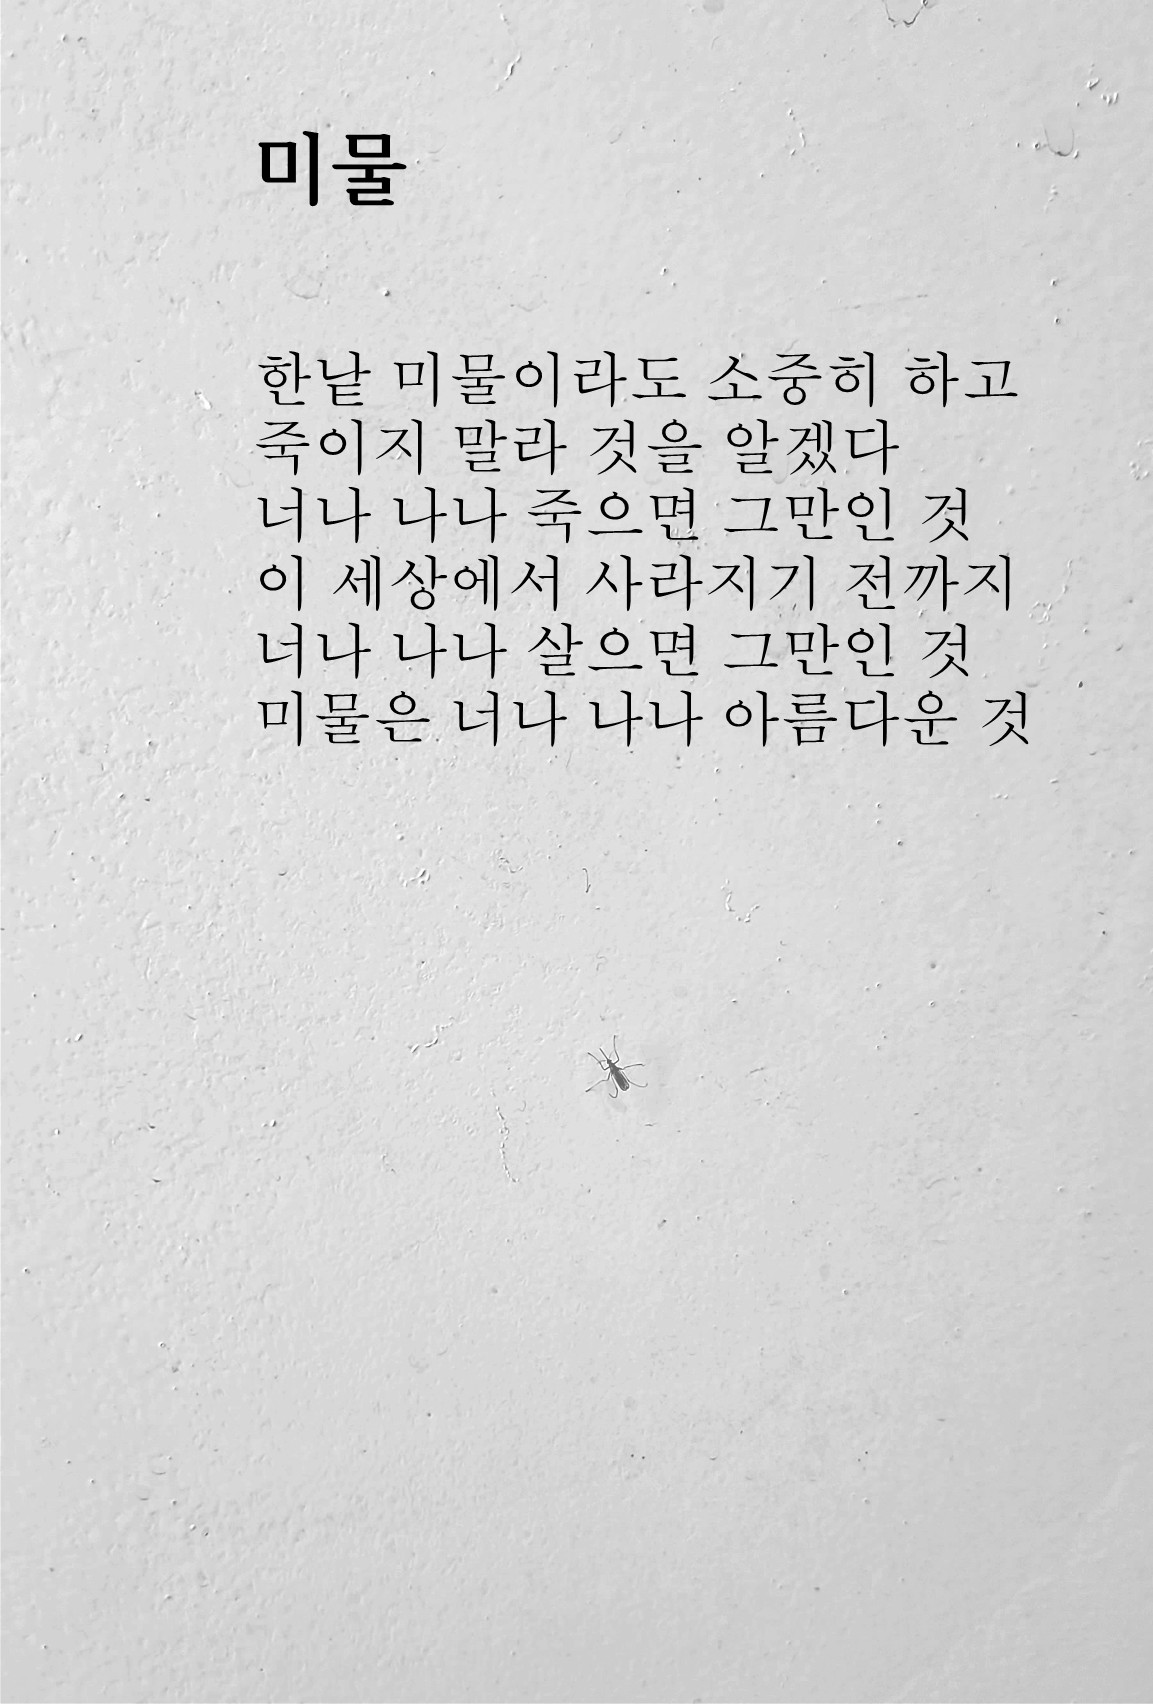 미물
한낱 미물이라도 소중히 하고
죽이지 말라 것을 알겠다
너나 나나 죽으면 그만인 것
이 세상에서 사라지기 전까지
너나 나나 살으면 그만인 것
미물은 너나 나나 아름다운 것